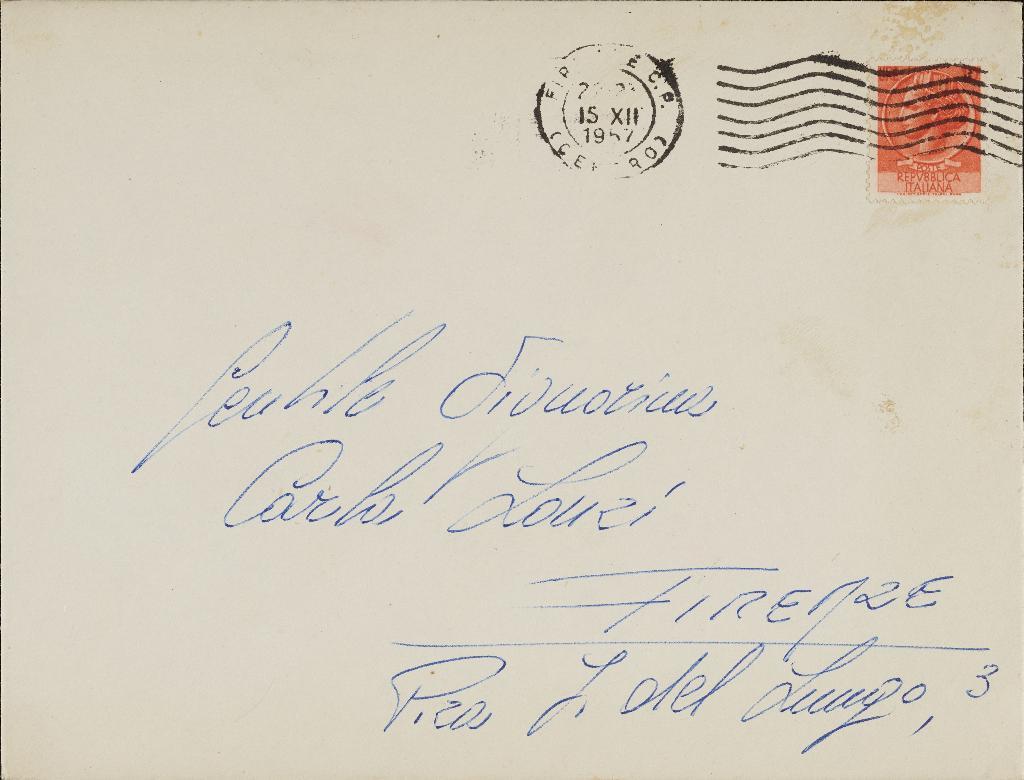 C.P.
15 XII
1957
POSTE
REPVBBLICA
ITALIANA
Gentile Signorina
Carla Lonzi
FIRENZE
P.za I. del Lungo, 3